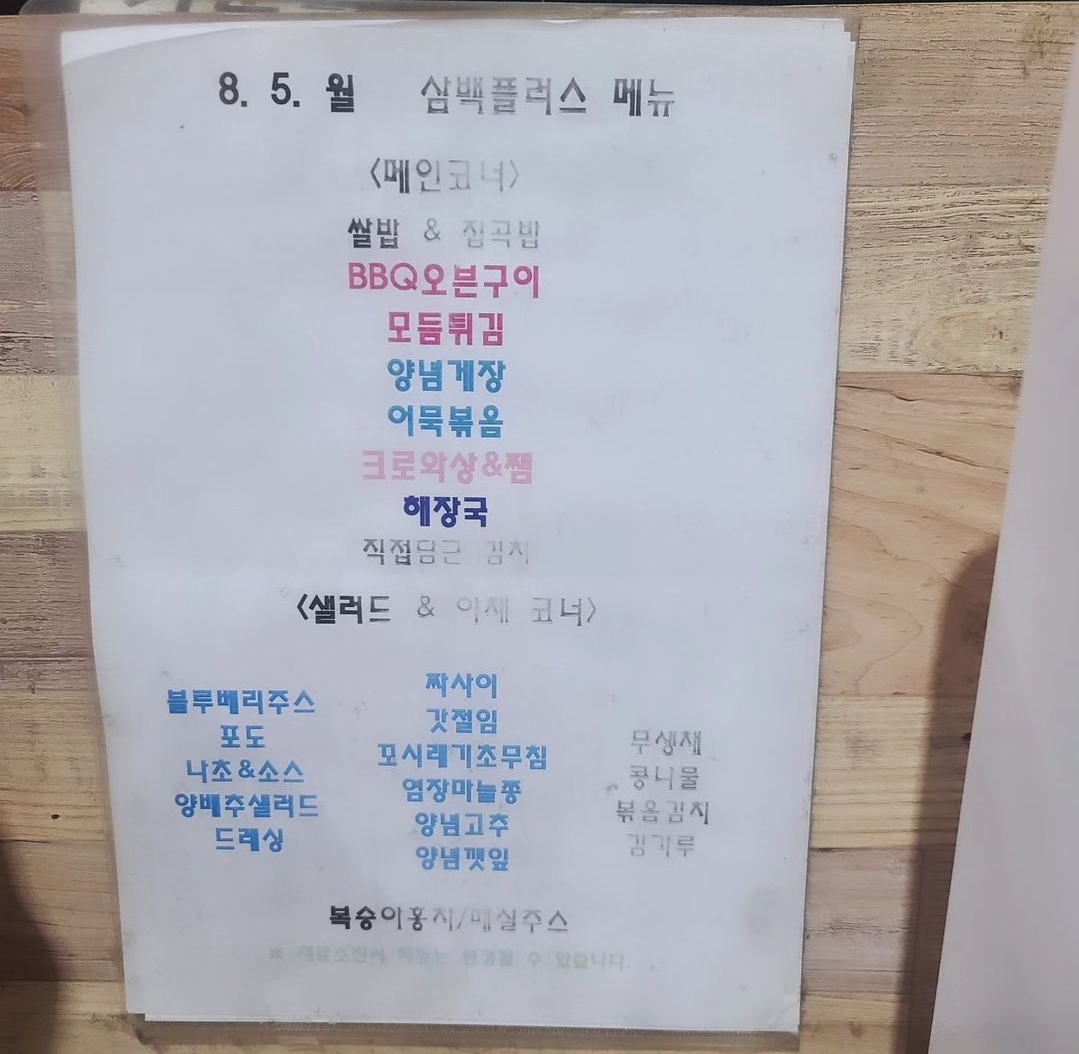 8. 5. 월 삼백플러스 메뉴
<메인코너>
쌀밥 & 잡곡밥
BBQ오븐구이
모듬튀김
양념게장
어묵볶음
크로와상&쨈
해장국
직접담근 김치
<샐러드 & 야채 코너>
블루베리주스
포도
나초&소스
양배추샐러드
드레싱
짜사이
갓절임
꼬시래기초무침
염장마늘쫑
양념고추
양념깻잎
무생채
콩나물
볶음김치
김가루
복숭아홍차/매실주스
※ 재료소진시 메뉴는 변경될 수 있습니다.